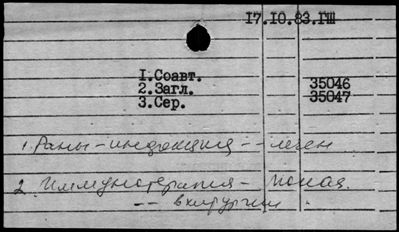 17.10.83.ГШ
1.Соавт.
2.Загл. 35046
3.Сер. 35047
1. Раны - инфекция -- лечен
2. Иммунотерапия -
-- в хирургии.